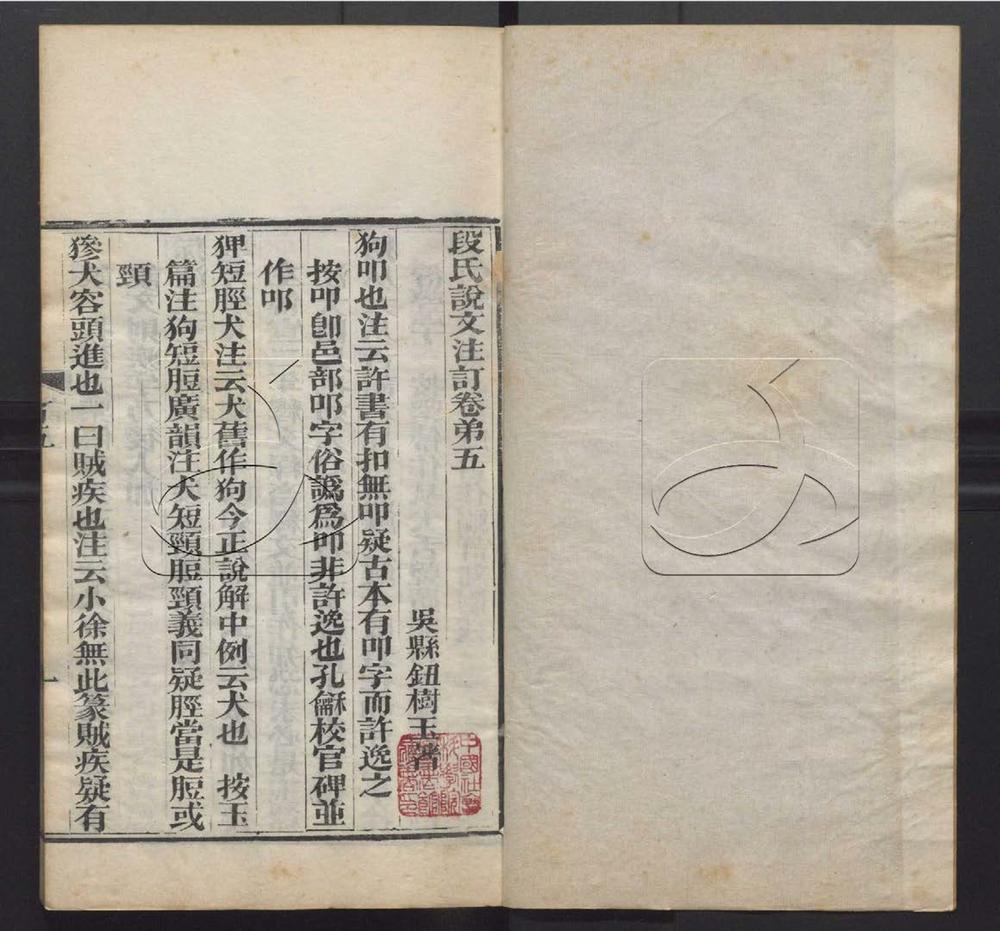 段氏說文注訂卷弟五
吳縣鈕樹玉著
狗叩也注云許書有扣無叩疑古本有叩字而許逸之
按叩卽邑部叩字俗譌爲叩非許逸也孔龢校官碑並
作叩
猈短脛犬注云犬舊作狗今正說解中例云犬也 按玉
篇注狗短脰廣韻注犬短頸脰頸義同疑脛當是脰或
頸
犬容頭進也一曰賊疾也注云小徐無此篆賊疾疑有